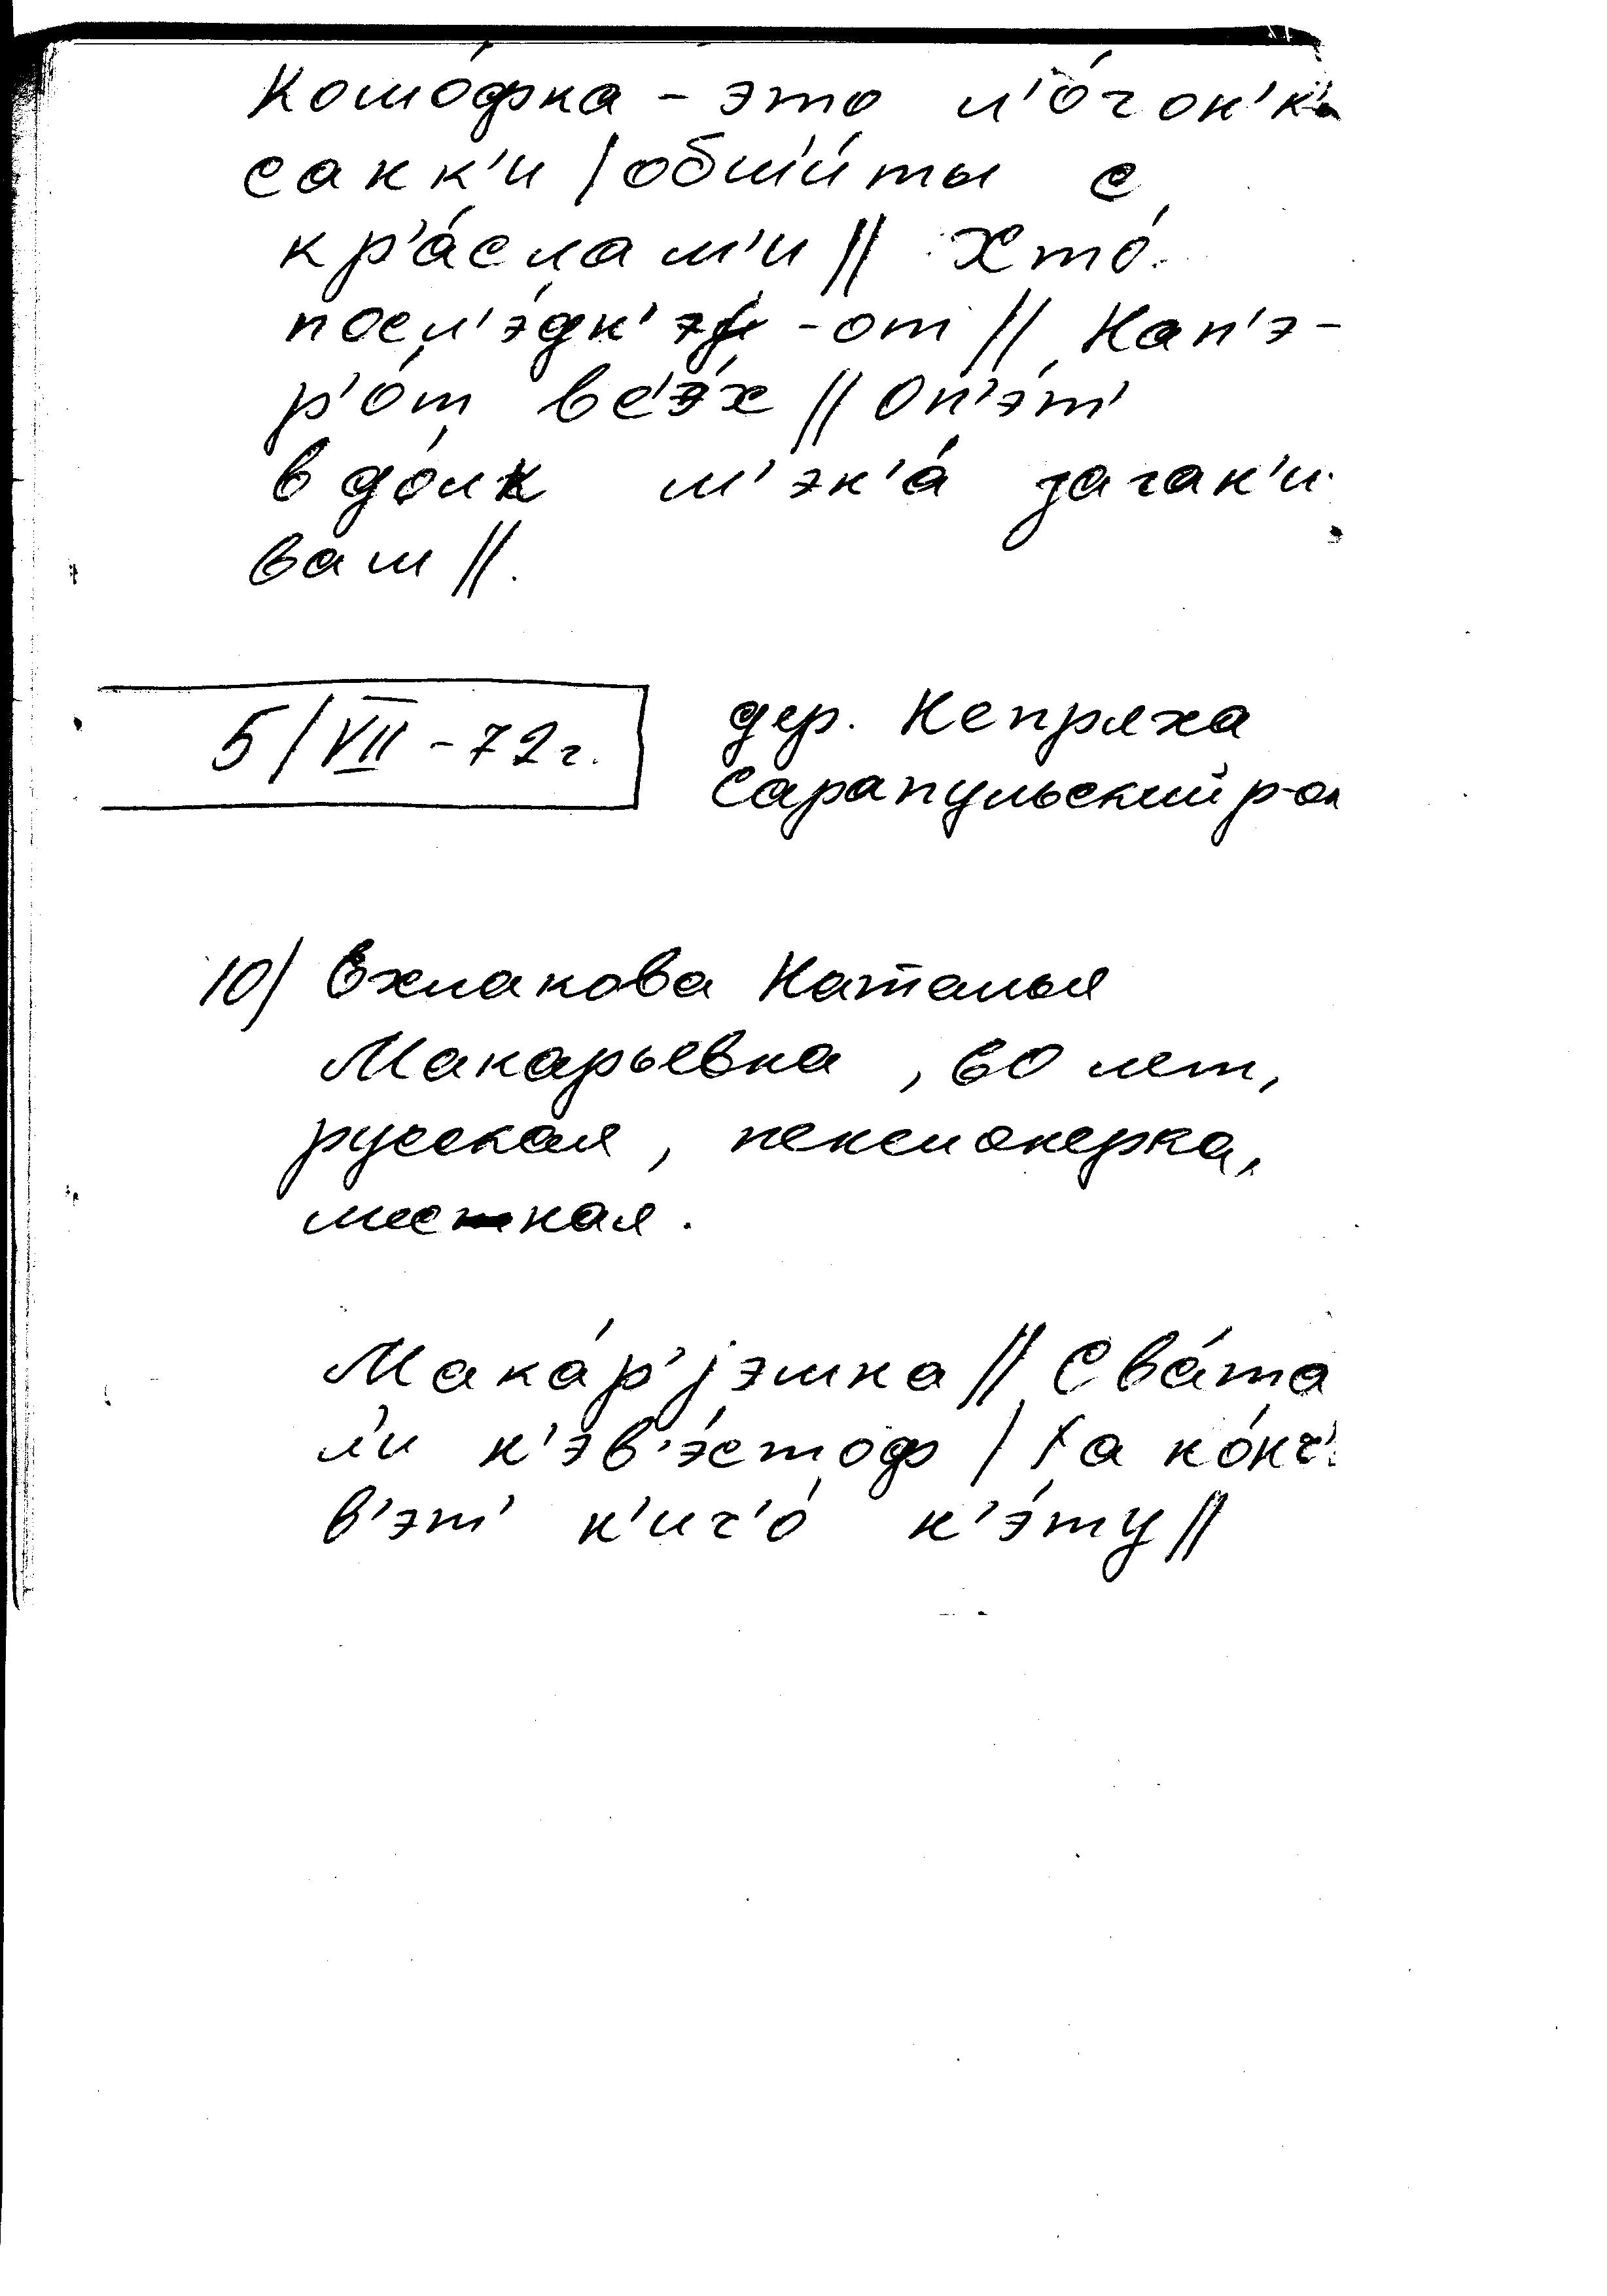 Кошо́фка - это л'о́гон'к'и
санк'и / обши́ты с
кр'а́слам'и // Хто́
посл'э́дн'эj -от // Нап'э-
р'о́т вс'э́х // Оп'э́т'
в до́лк м'эн'а́ заган'и
ваш //.
5/VII - 72 г.
дер. Непряха
Сарапульский р-он
10/ Вхмакова Наталья
Макарьевна , 60 лет,
русская, пенсионерка,
местная.
Мака́р'jэшна // Сва́та
л'и н'эв'э́стоф / На ко́нч'
в'эт' н'ич'о́ н'э́ту //